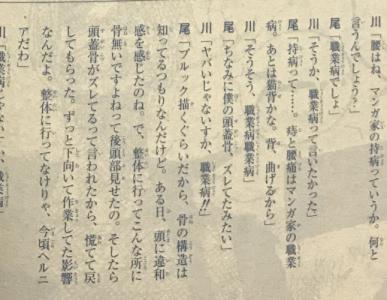 川「腰はね、マンガ家の持病っていうか。何と
言うんでしょう?」
尾「職業病でしょ」
川「そうか、職業病って言いたかった」
尾「持病って……。痔と腰痛はマンガ家の職業
病。あとは猫背かな。背、曲げるから」
川「そうそう、職業病職業病」
尾「ちなみに僕の頭蓋骨、ズレてたみたい」
川「ヤバいじゃないすか、職業病!!」
尾「ブルック描くぐらいだから、骨の構造は
知ってるつもりなんだけど。ある日、頭に違和
感を感じたのね。で、整体に行ってこんな所に
骨無いですよねって後頭部見せたの。そしたら
頭蓋骨がズレてるって言われたから、慌てて戻
してもらった。ずっと下向いて作業してた影響
なんだよ。整体に行ってなけりゃ、今頃ヘルニ
アだわ」
川「職業病じゃない